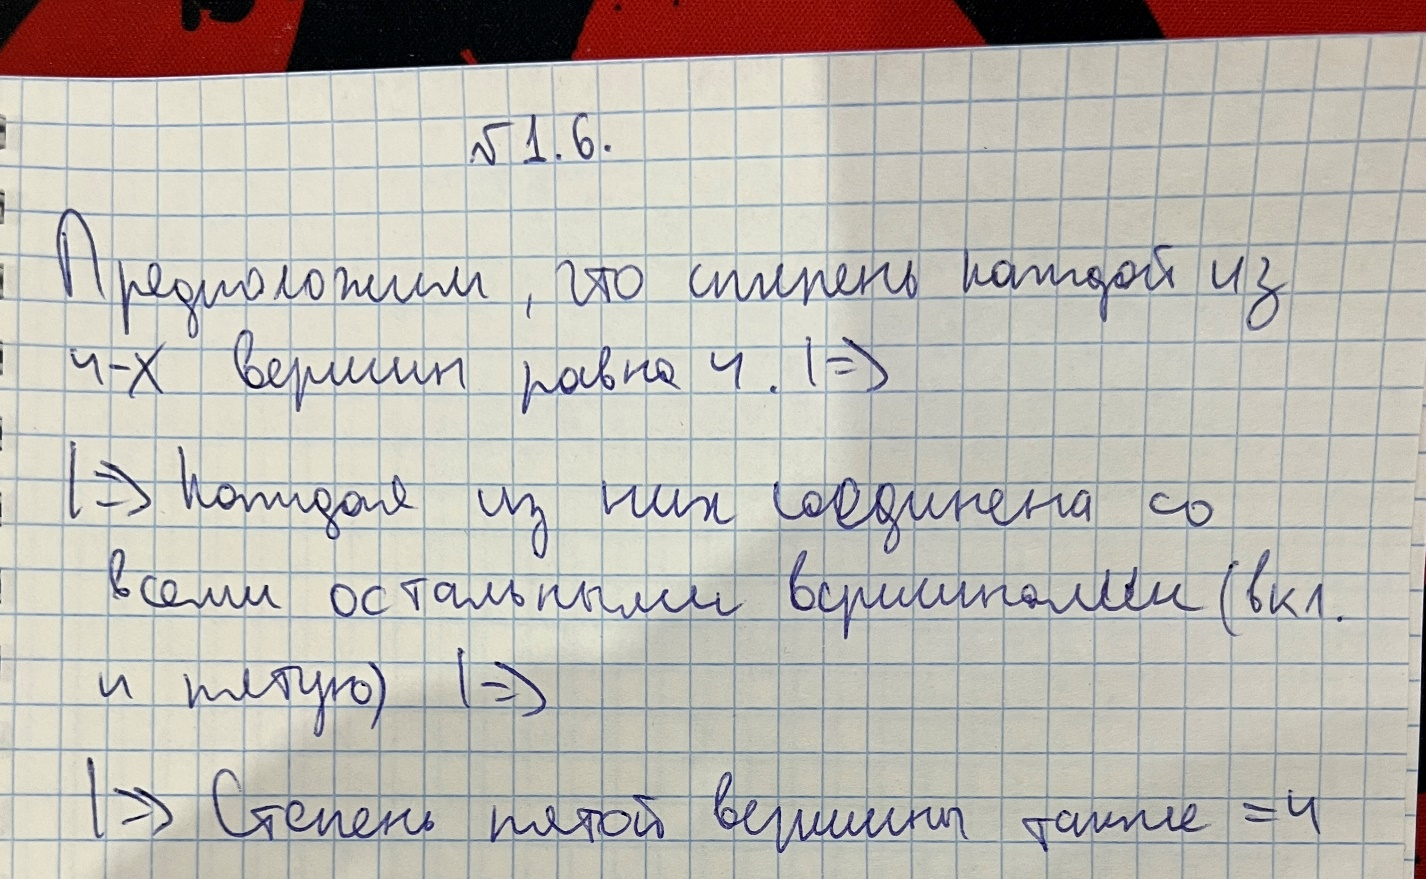 № 1.6.
Предположим, что степень каждой из
4-х вершин равна 4. |=>
|=> Каждая из них соединена со
всеми остальными вершинами (вкл.
и пятую) |=>
|=> Степень пятой вершины также =4